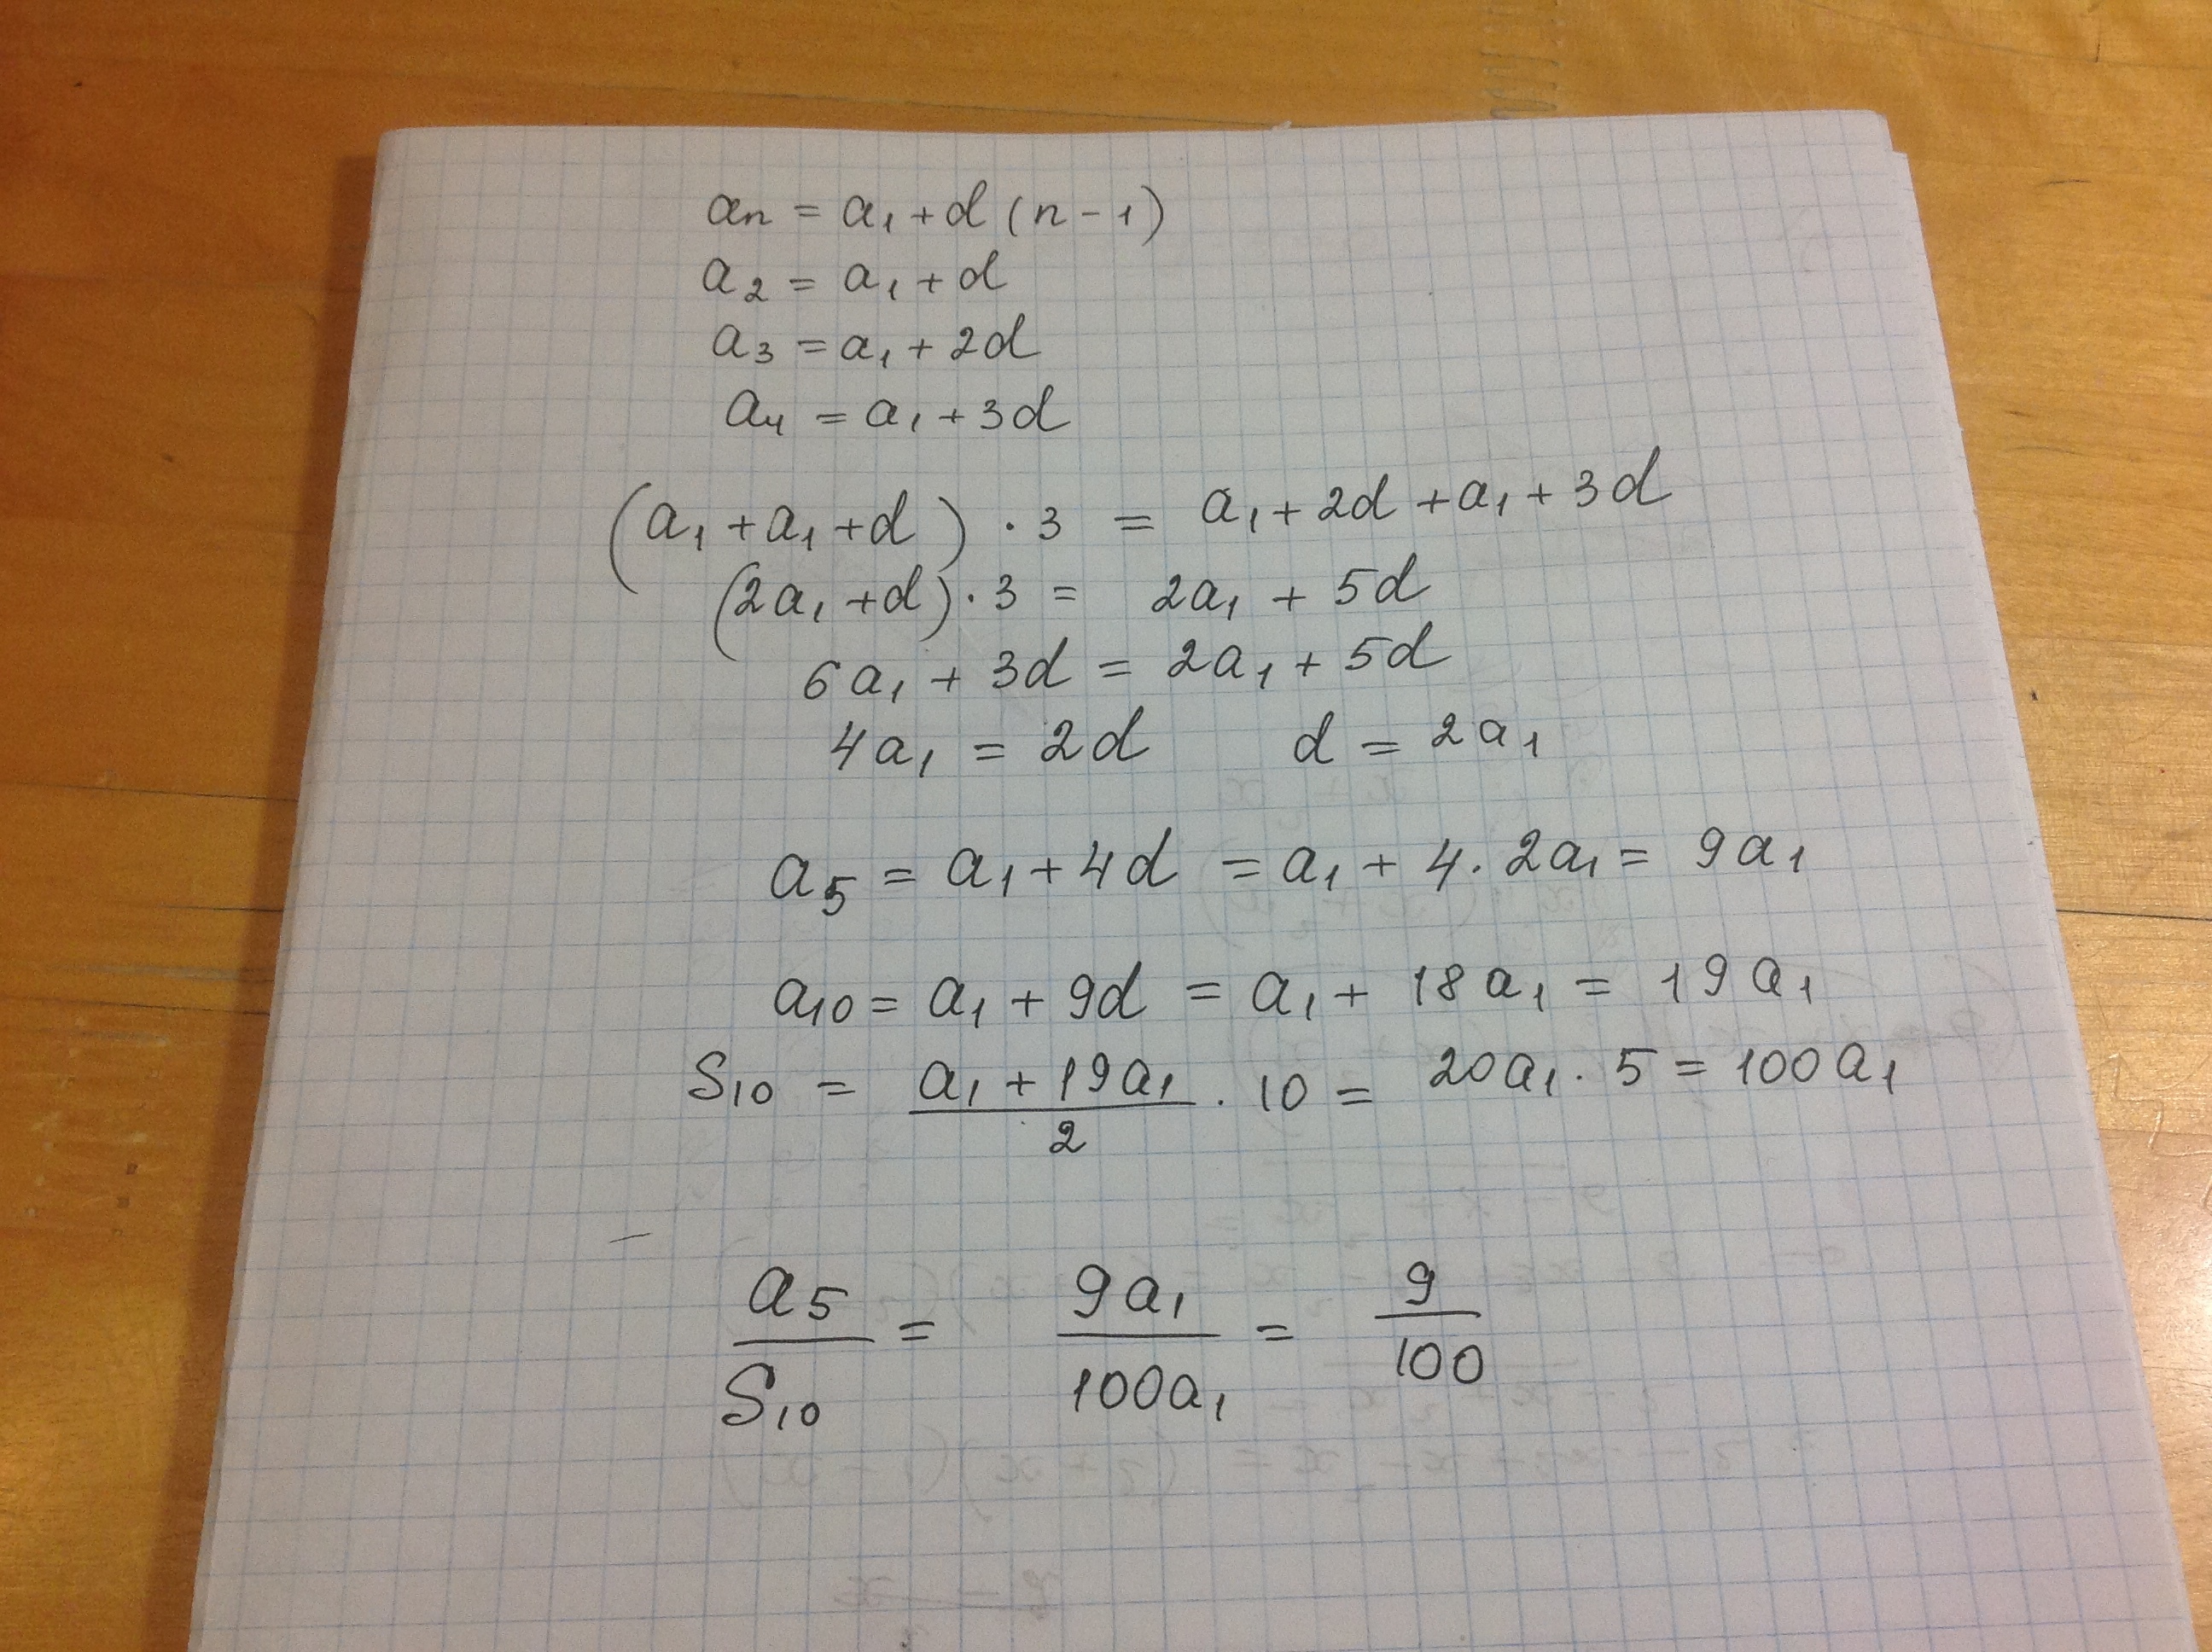 an = a₁ + d (n - 1)
a₂ = a₁ + d
a₃ = a₁ + 2d
a₄ = a₁ + 3d
(a₁ + a₁ + d) · 3 = a₁ + 2d + a₁ + 3d
(2a₁ + d) · 3 = 2a₁ + 5d
6a₁ + 3d = 2a₁ + 5d
4a₁ = 2d d = 2a₁
a₅ = a₁ + 4d = a₁ + 4 · 2a₁ = 9a₁
a₁₀ = a₁ + 9d = a₁ + 18a₁ = 19a₁
S₁₀ = (a₁ + 19a₁)/2 · 10 = 20a₁ · 5 = 100a₁
a₅/S₁₀ = 9a₁/100a₁ = 9/100